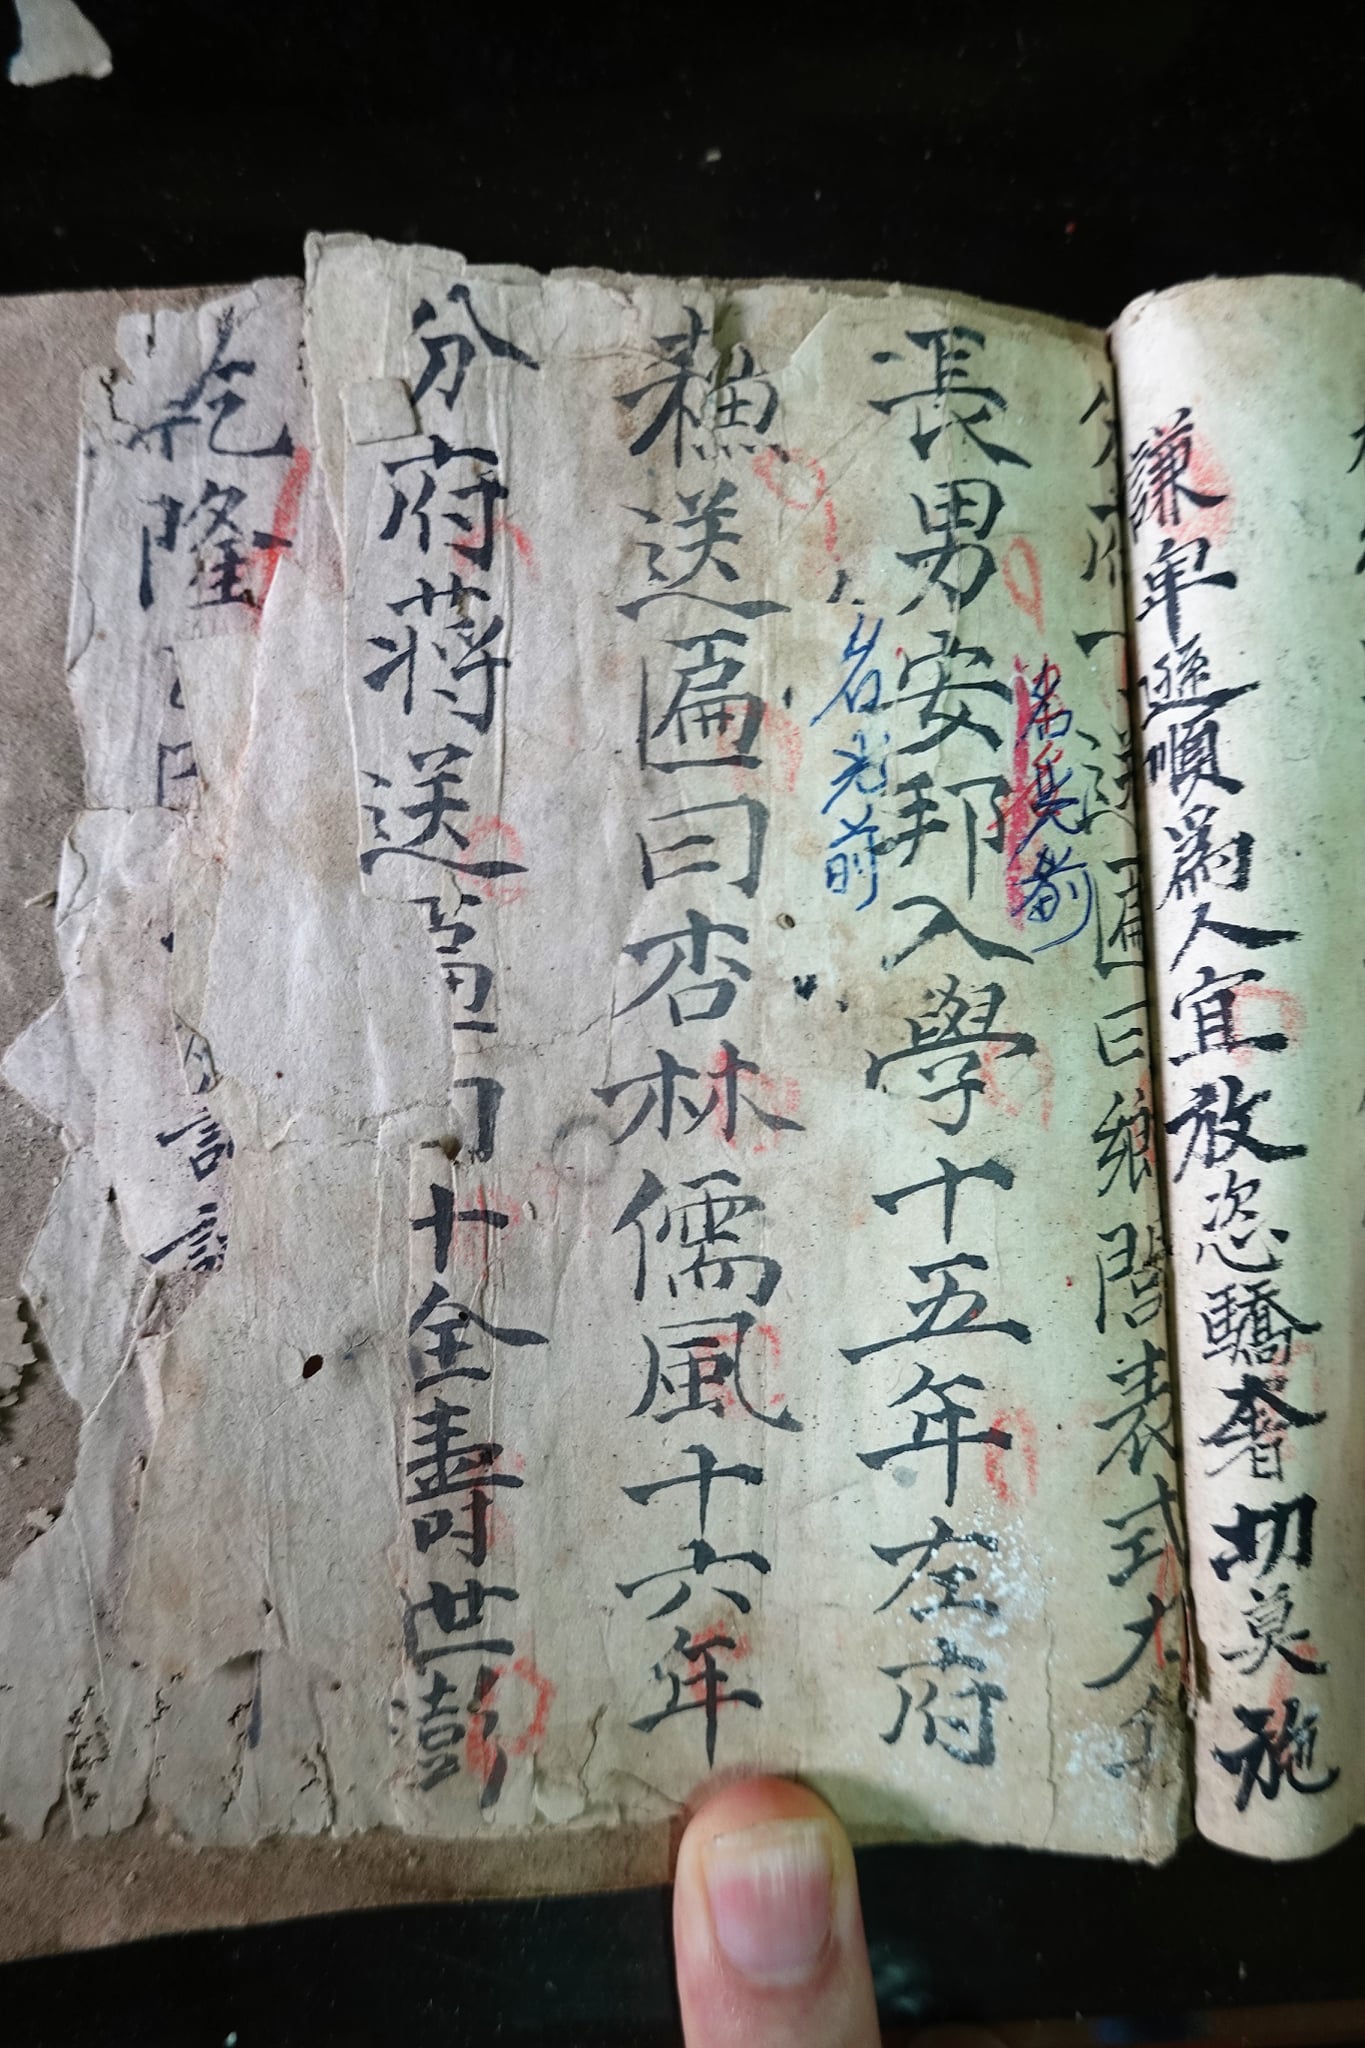 謙卑遜順為人宜放恣驕奢切莫施
送匾曰鄉閭表式大
名兆前
長男安邦入學十五年左府
名光前
蘓送匾曰杏林儒風十六年
分府蔣送匾曰十全壽世彭
乾隆